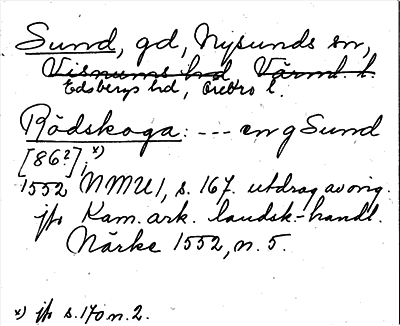 Sund, gd, Nysunds sn,
Visnums hd Värml. l.
Edsbergs hd, Örebro l.
Rådskoga: --- en g Sund
[86?], x)
1552 NMU 1, s. 167. utdrag av orig.
jfr Kam. ark. landsk.-handl.
Närke 1552, n. 5.
x) jfr s. 170 n. 2.